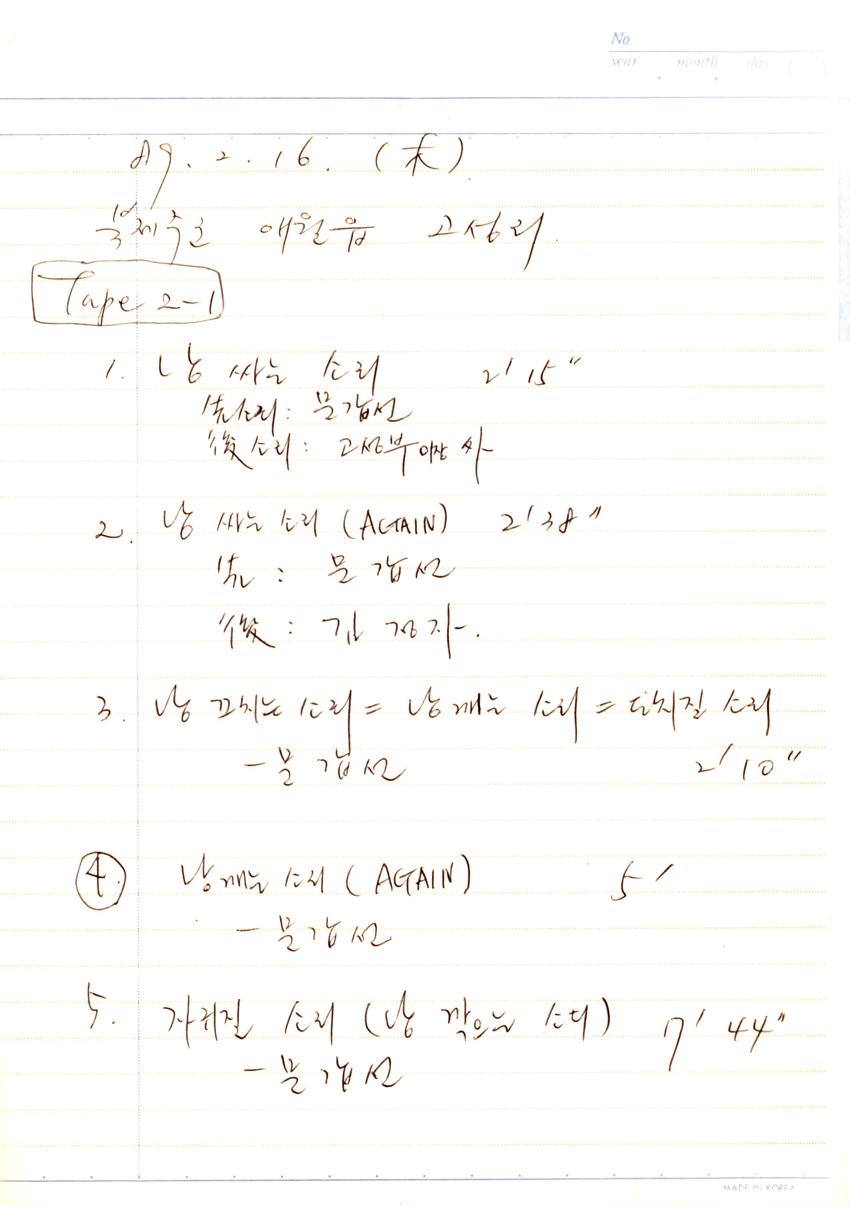 No.
year month day ( )
89. 2. 16. (木)
북제주군 애월읍 고성리.
Tape 2-1
1. 낭 싸는 소리 2' 15"
先소리: 문갑선
後소리: 고성부이장 싸
2. 낭 싸는 소리 (AGAIN) 2' 38"
先: 문갑선
後: 김경자.
3. 낭 끄치는 소리 = 낭 깨는 소리 = 도치질 소리
- 문갑선 2' 10"
4. 낭 깨는 소리 (AGAIN) 5'
- 문갑선
5. 자귀질 소리 (낭 깎으는 소리) 7' 44"
- 문갑선
MADE IN KOREA